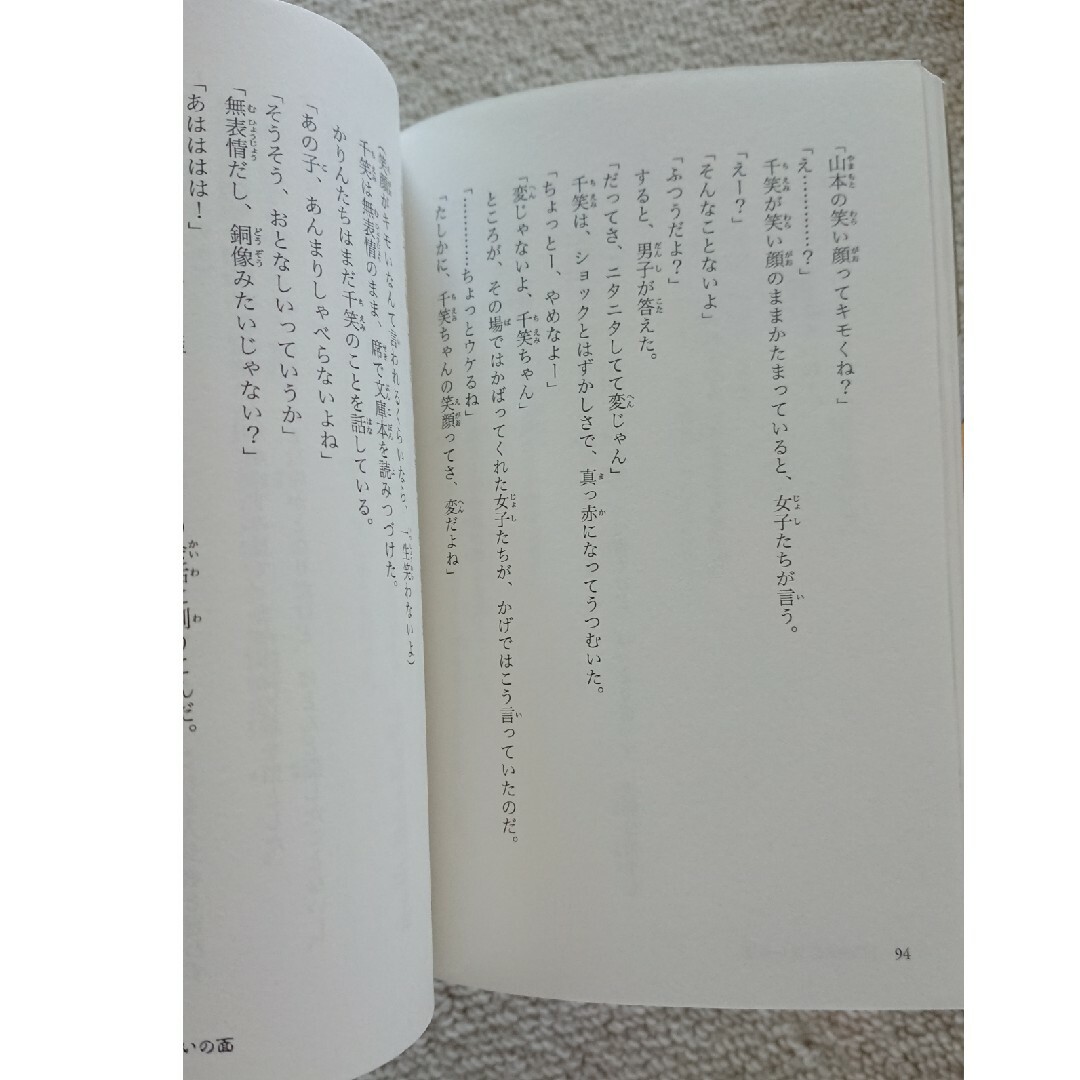 「山本の笑い顔ってキモくね？」
「え…………？」
千笑が笑い顔のままかたまっていると、女子たちが言う。
「えー？」
「そんなことないよ」
「ふつうだよ？」
すると、男子が答えた。
「だってさ、ニタニタしてて変じゃん」
千笑は、ショックとはずかしさで、真っ赤になってうつむいた。
「ちょっとー、やめなよー」
「変じゃないよ、千笑ちゃん」
ところが、その場ではかばってくれた女子たちが、かげではこう言っていたのだ。
「…………ちょっとウケるね」
「たしかに、千笑ちゃんの笑顔ってさ、変だよね」
94
（笑顔がキモいなんて言われるくらいなら、一生笑わないよ）
千笑は無表情のまま、席で文庫本を読みつづけた。
かりんたちはまだ千笑のことを話している。
「あの子、あんまりしゃべらないよね」
「そうそう、おとなしいっていうか」
「無表情だし、銅像みたいじゃない？」
「あはははは！」
いの面